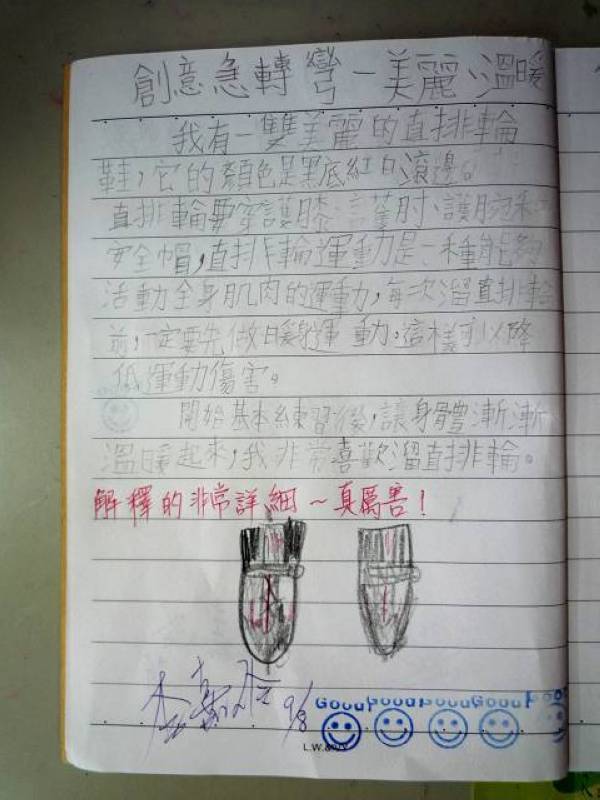 創意急轉彎－美麗、溫暖
我有一雙美麗的直排輪
鞋，它的顏色是黑底紅白滾邊。
直排輪要穿護膝、護肘、護腕和
安全帽，直排輪運動是一種能夠
活動全身肌肉的運動，每次溜直排輪
前，一定要先做暖身運動。這樣可以降
低運動傷害。
開始基本練習後，讓身體漸漸
溫暖起來，我非常喜歡溜直排輪。
解釋的非常詳細～真厲害！
9/8
Good Good Good Good Good
L.W.